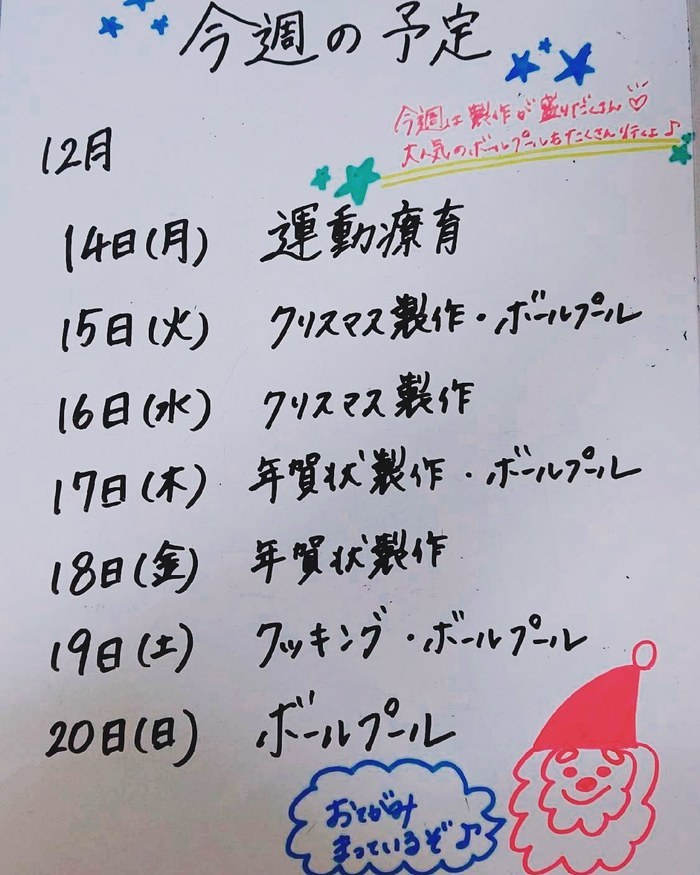 今週の予定
今週は製作が盛りだくさん♡
大人気のボールプールもたくさん行くよ♪
12月
14日(月) 運動療育
15日(火) クリスマス製作・ボールプール
16日(水) クリスマス製作
17日(木) 年賀状製作・ボールプール
18日(金) 年賀状製作
19日(土) クッキング・ボールプール
20日(日) ボールプール
おてがみ
まっているぞ♪